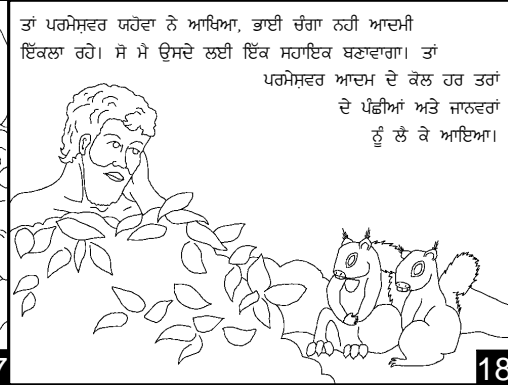 ਤਾਂ ਪਰਮੇਸ਼ਵਰ ਯਹੋਵਾ ਨੇ ਆਖਿਆ, ਭਾਈ ਚੰਗਾ ਨਹੀ ਆਦਮੀ
ਇੱਕਲਾ ਰਹੇ। ਸੋ ਮੈ ਉਸਦੇ ਲਈ ਇੱਕ ਸਹਾਇਕ ਬਣਾਵਾਗਾ। ਤਾਂ
ਪਰਮੇਸ਼ਵਰ ਆਦਮ ਦੇ ਕੋਲ ਹਰ ਤਰਾਂ
ਦੇ ਪੰਛੀਆਂ ਅਤੇ ਜਾਨਵਰਾਂ
ਨੂੰ ਲੈ ਕੇ ਆਇਆ।
7
18